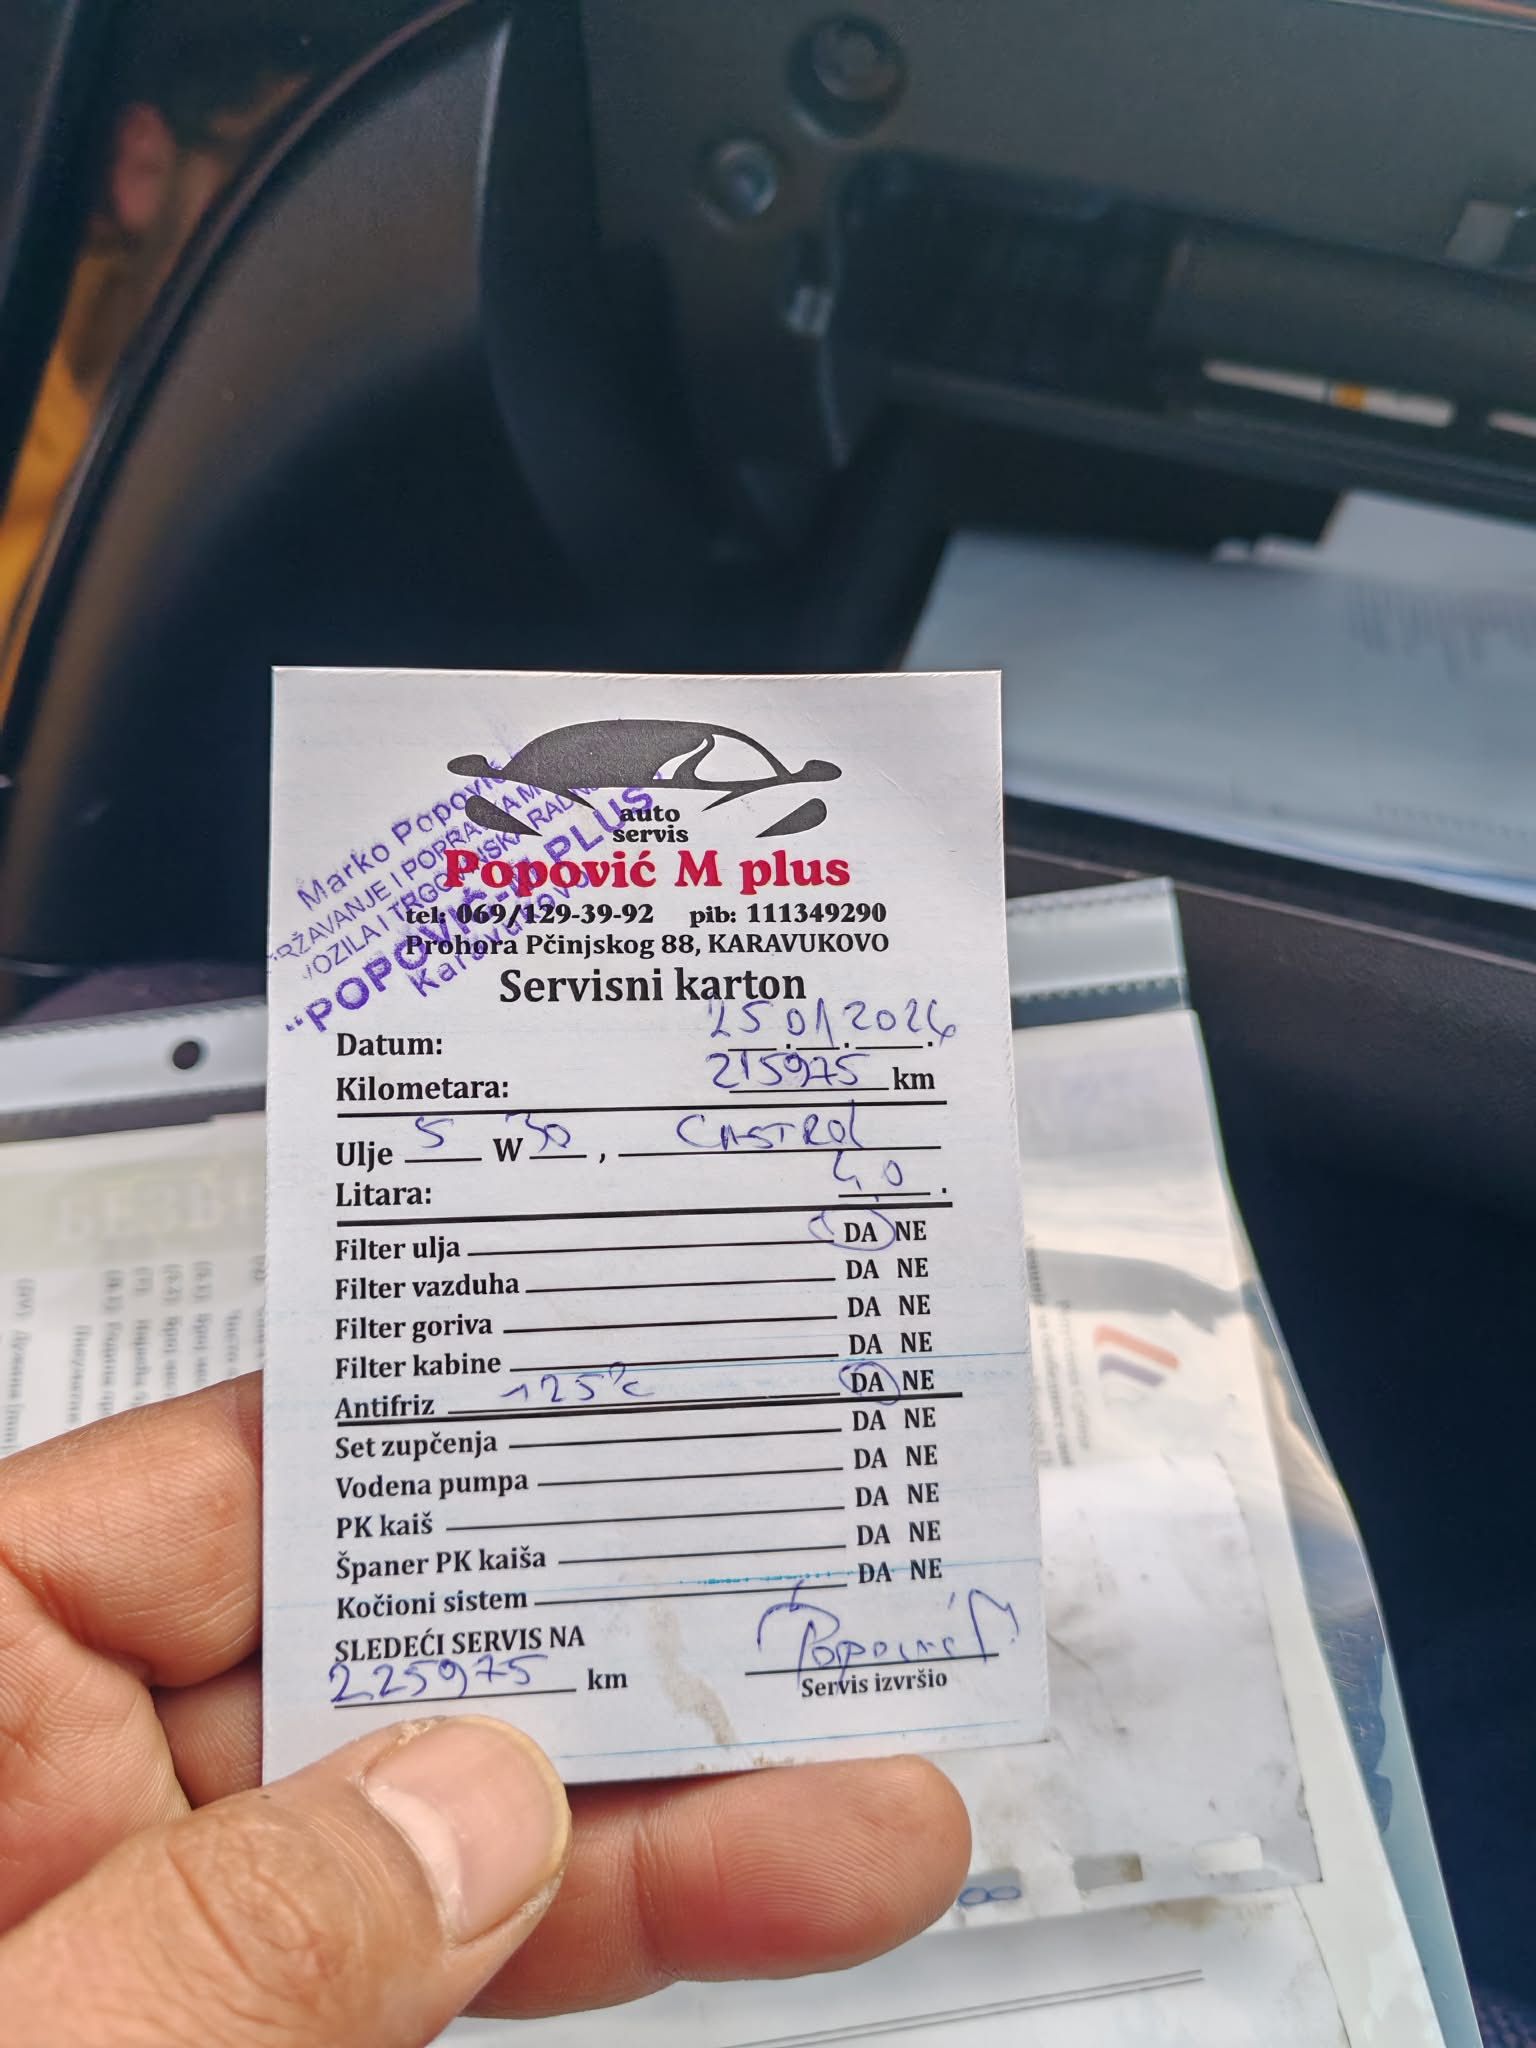 auto
servis
Popović M plus
tel: 069/129-39-92 pib: 111349290
Prohora Pčinjskog 88, KARAVUKOVO
Marko Popović
RŽAVANJE I POPRAVKA M
VOZILA I TRGOVINSKA RADNJ
"POPOVIĆ-M PLUS
Karavukovo
Servisni karton
Datum: 25.01.2024.
Kilometara: 215975 km
Ulje 5 W 30, CASTROL
Litara: 4,0.
Filter ulja DA NE
Filter vazduha DA NE
Filter goriva DA NE
Filter kabine DA NE
Antifriz -25°C DA NE
Set zupčenja DA NE
Vodena pumpa DA NE
PK kaiš DA NE
Španer PK kaiša DA NE
Kočioni sistem DA NE
SLEDEĆI SERVIS NA
225975 km
Popović M
Servis izvršio